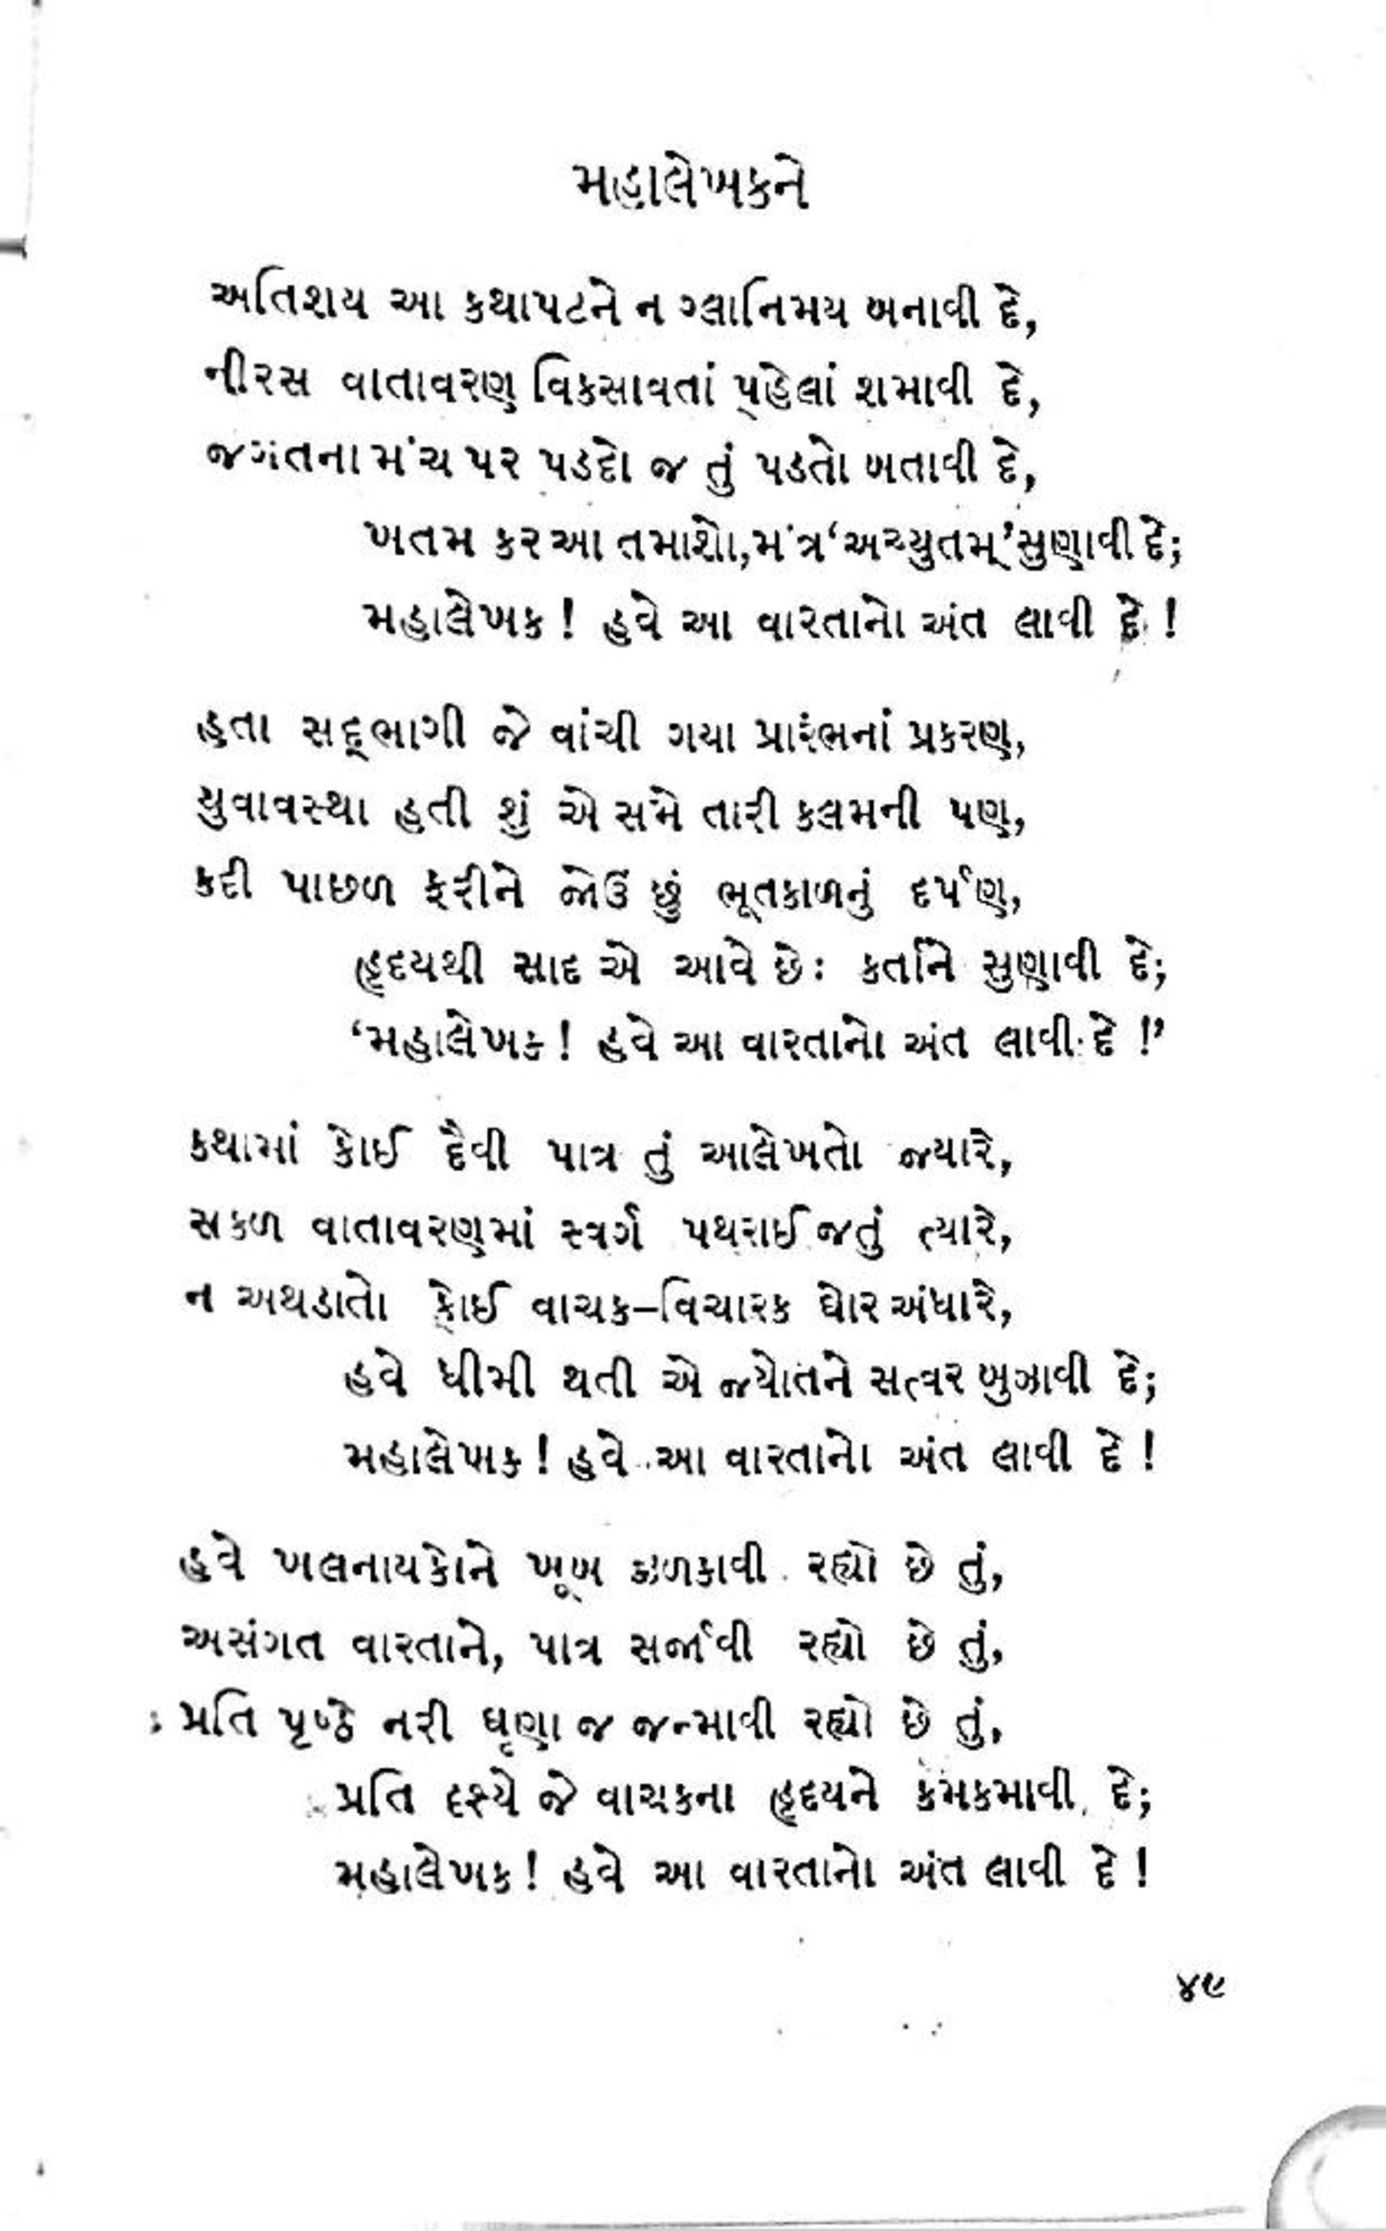 મહાલેખકને
અતિશય આ કથાપટને ન ગ્લાનિમય બનાવી દે,
નીરસ વાતાવરણ વિકસાવતાં પ્હેલાં શમાવી દે,
જગતના મંચ પર પડદો જ તું પડતો બતાવી દે,
ખતમ કર આ તમાશો, મંત્ર ‘અચ્યુતમ્’ સુણાવી દે;
મહાલેખક ! હવે આ વારતાનો અંત લાવી દે !
હતા સદ્ભાગી જે વાંચી ગયા પ્રારંભનાં પ્રકરણ,
યુવાવસ્થા હતી શું એ સમે તારી કલમની પણ,
કદી પાછળ ફરીને જોઉં છું ભૂતકાળનું દર્પણ,
હૃદયથી સાદ એ આવે છેઃ કર્તાને સુણાવી દે;
‘મહાલેખક ! હવે આ વારતાનો અંત લાવી દે !’
કથામાં કોઈ દૈવી પાત્ર તું આલેખતો જ્યારે,
સકળ વાતાવરણમાં સ્વર્ગ પથરાઈ જતું ત્યારે,
ન અથડાતો કોઈ વાચક–વિચારક ઘોર અંધારે,
હવે ધીમી થતી એ જ્યોતને સત્વર બુઝાવી દે;
મહાલેખક ! હવે આ વારતાનો અંત લાવી દે !
હવે ખલનાયકોને ખૂબ ઝળકાવી રહ્યો છે તું,
અસંગત વારતાને, પાત્ર સર્જાવી રહ્યો છે તું,
પ્રતિ પૃષ્ઠે નરી ઘૃણા જ જન્માવી રહ્યો છે તું,
પ્રતિ દૃશ્યે જે વાચકના હૃદયને કમકમાવી દે;
મહાલેખક ! હવે આ વારતાનો અંત લાવી દે !
૪૯